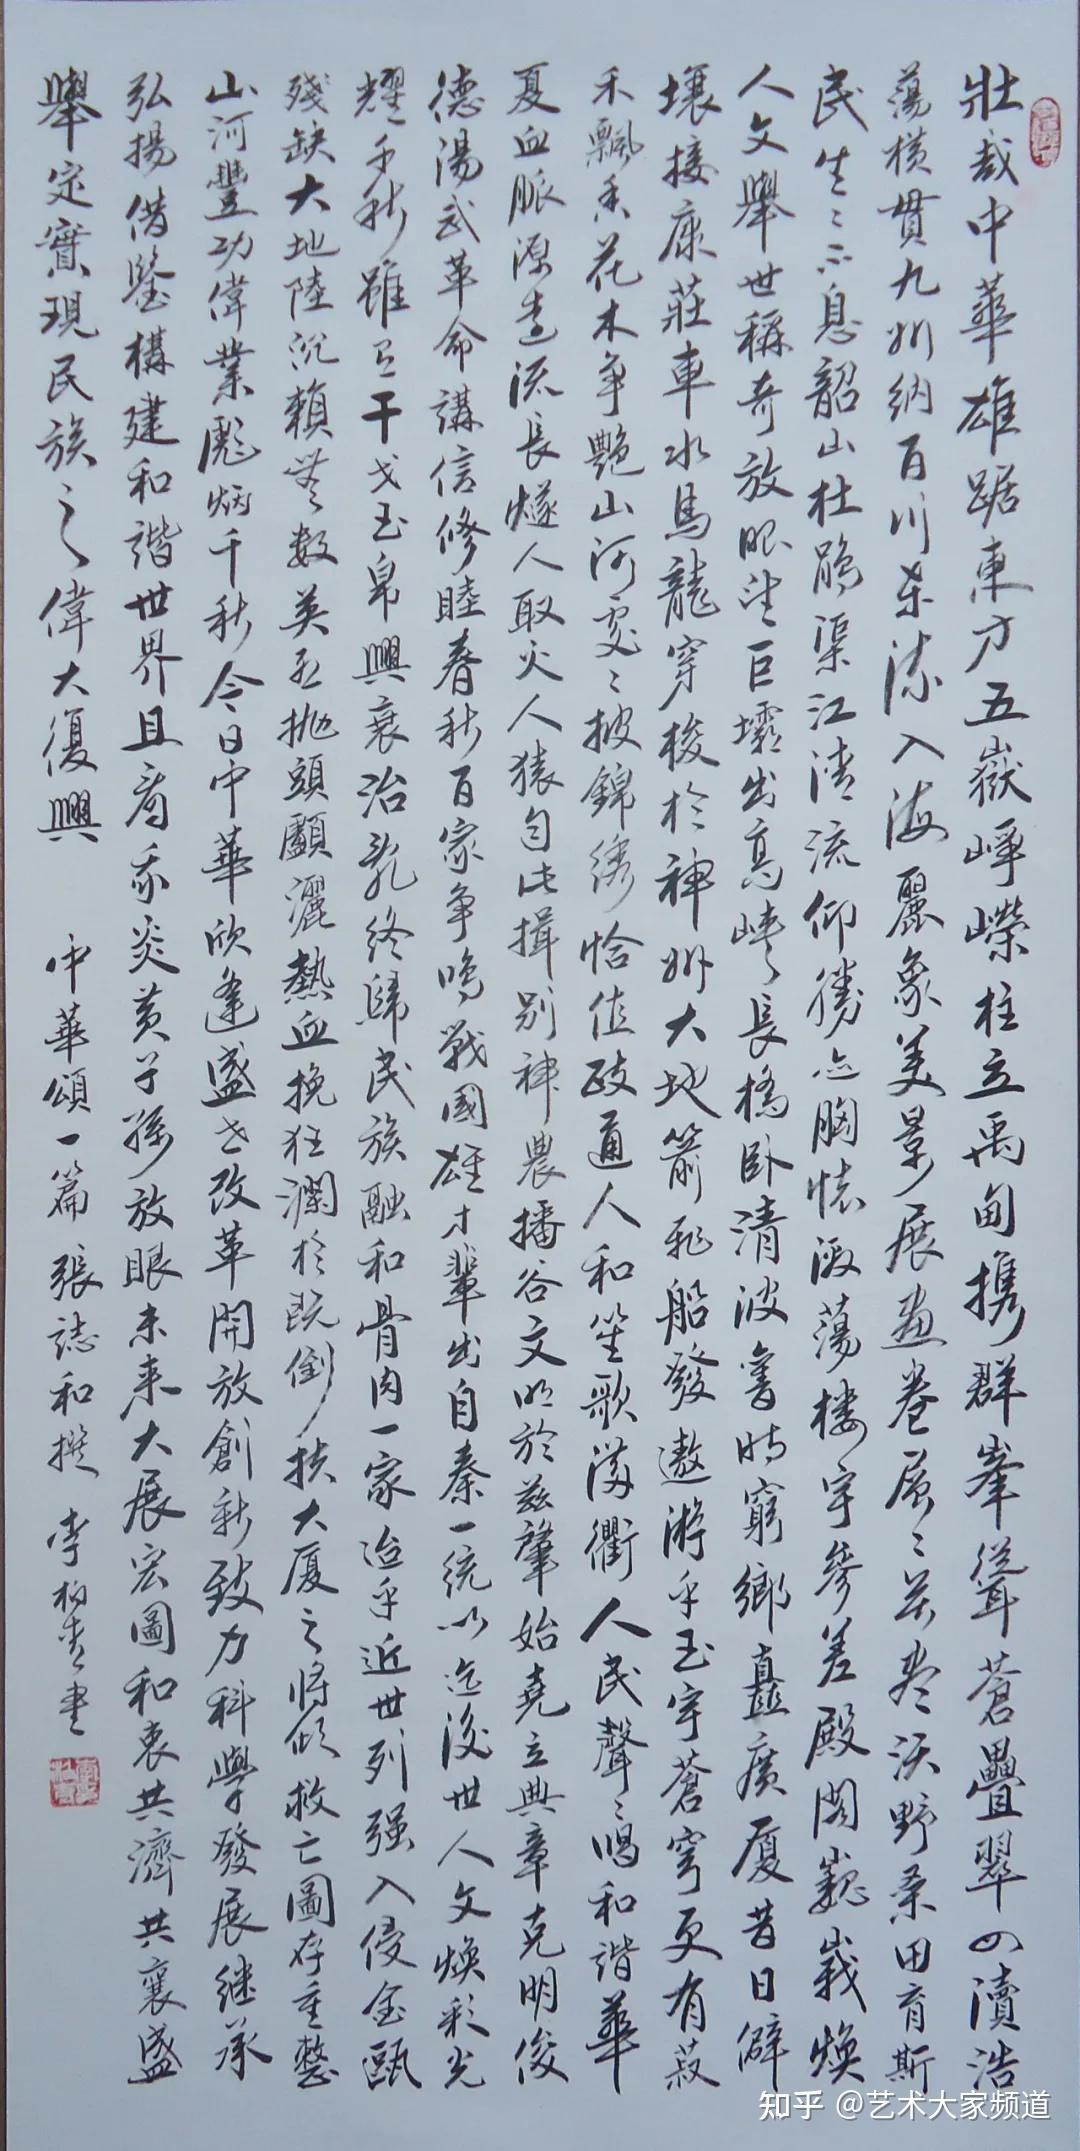 壯哉中華雄踞東方五嶽崢嶸柱立禹甸携群峯聳蒼疊翠四瀆浩
蕩橫貫九州納百川朵流入海麗象美景展畫卷層〻若夫沃野桑田育斯
民生〻不息韶山杜鵑渠江清流仰勝迹胸懷激蕩樓宇參差殿閣巍峩煥
人文舉世稱奇放眼望巨壩出高峽長橋卧清波舊時窮鄉矗廣廈昔日僻
壤接康莊車水馬龍穿梭於神州大地箭飛船發遨游乎玉宇蒼穹更有菽
禾飄香花木争艷山河處〻披錦綉恰值政通人和笙歌滿衢人民聲〻唱和諧華
夏血脈源遠流長燧人取火人猿自此揖别神農播谷文明於兹肇始堯立典章克明俊
德湯武革命講信修睦春秋百家争鳴戰國雄才輩出自秦一統以迄後世人文煥彩光
耀千秋雖有干戈玉帛興衰治亂終歸民族融和骨肉一家迨乎近世列强入侵金甌
殘缺大地陸沉賴無數英烈抛頭顱灑熱血挽狂瀾於既倒扶大廈之將傾救亡圖存重整
山河豐功偉業彪炳千秋今日中華欣逢盛世改革開放創新致力科學發展繼承
弘揚借鑒構建和諧世界且看我炎黄子孫放眼未来大展宏圖和衷共濟共襄盛
舉定實現民族之偉大復興
中華頌一篇張誌和撰 李柏青書
知乎 @艺术大家频道